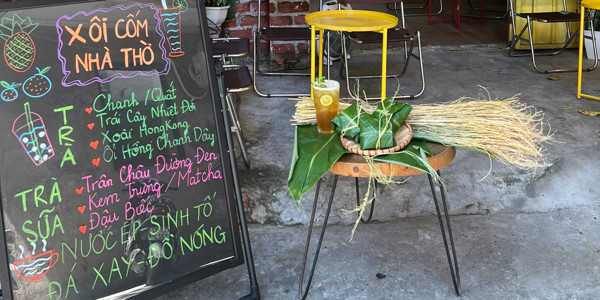 XÔI CỐM
NHÀ THỜ
TRÀ
Chanh/Quất
Trái Cây Nhiệt Đới
Xoài HongKong
Ổi Hồng Chanh Dây
TRÀ SỮA
Trân Châu Đường Đen
Kem Trứng/Matcha
Đậu Biếc
NƯỚC ÉP-SINH TỐ
ĐÁ XAY-ĐỒ NÓNG